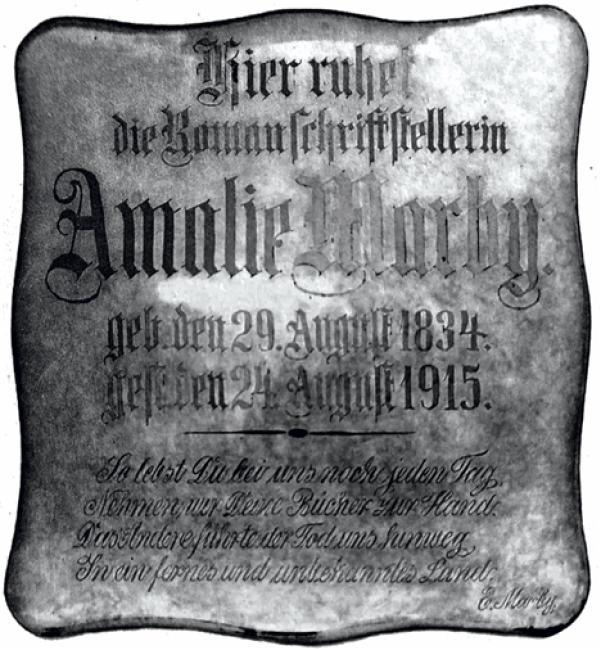 Hier ruhet
die Romanschriftstellerin
Amalie Marby.
geb. den 29. August 1834.
gest. den 24. August 1915.
So lebst Du bei uns noch jeden Tag,
Nehmen wir Deine Bücher zur Hand.
Das Andere führte der Tod uns hinweg
In ein fernes und unbekanntes Land.
E. Marby.